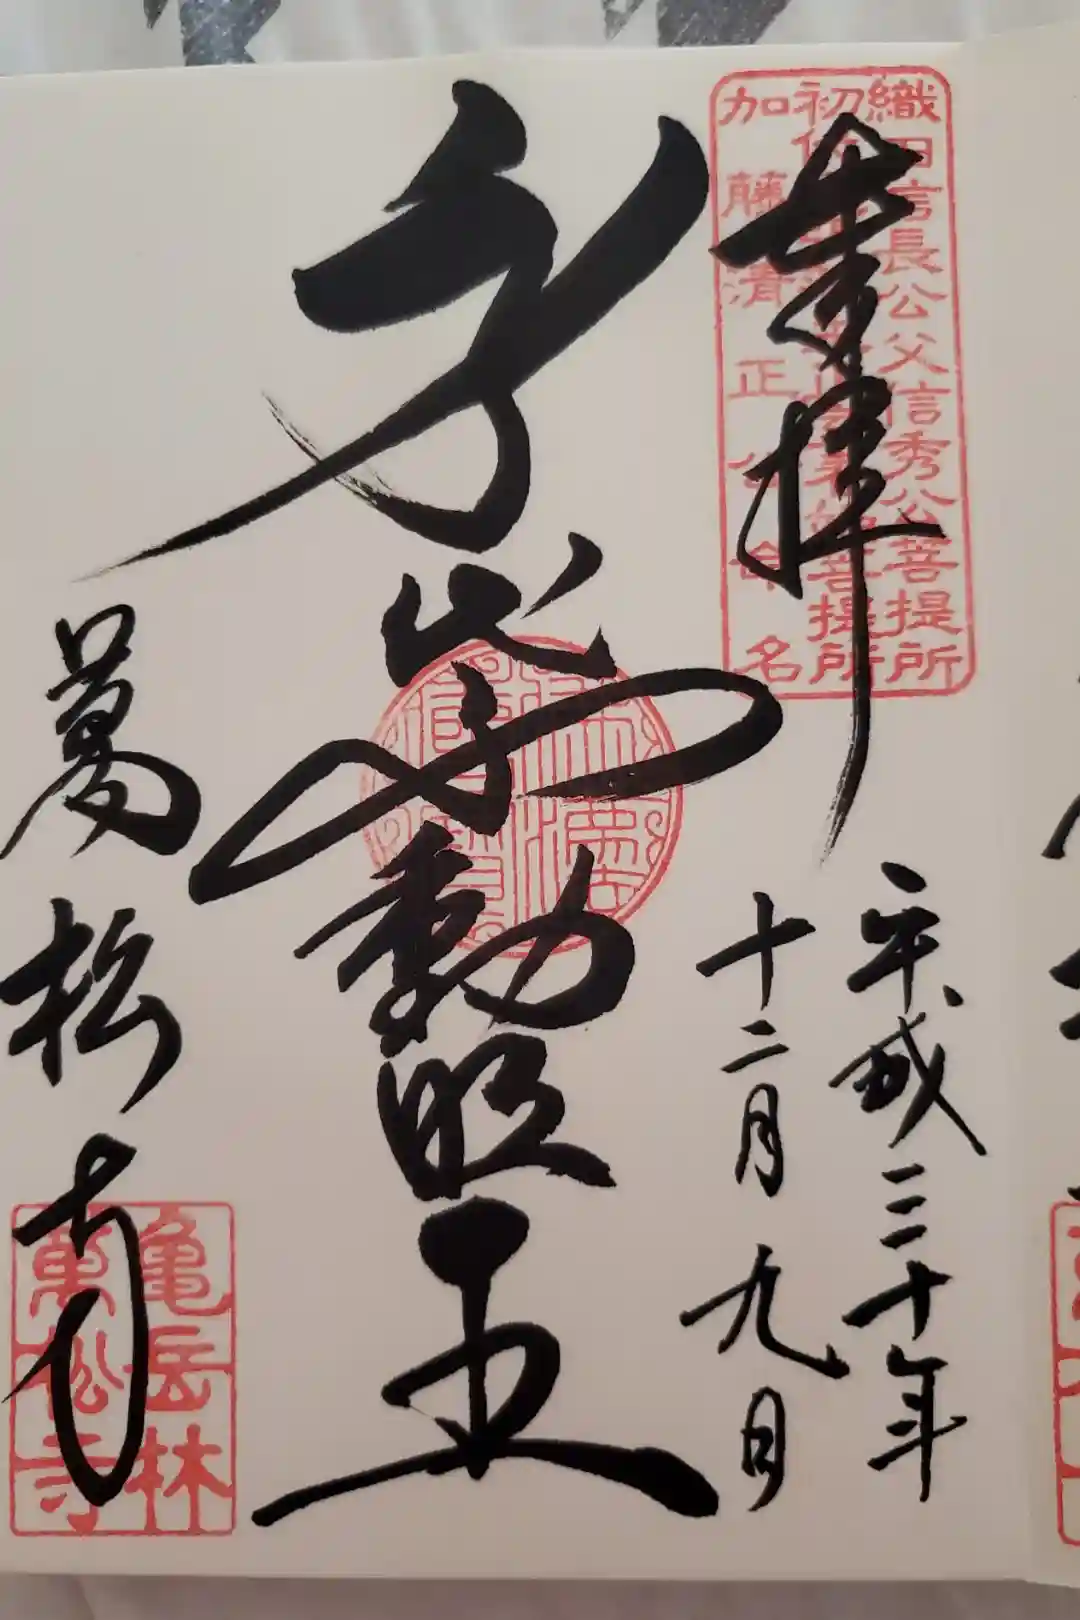 奉拝
織田信長公父信秀公菩提所
初 菩提所
加藤清正公命名
平成三十年
十二月九日
身代不動明王
萬松寺
亀岳林
萬松寺